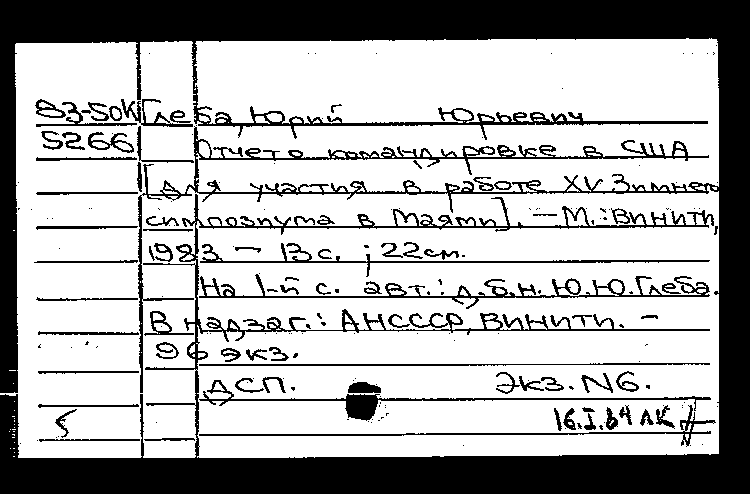 83-50К Глеба, Юрий Юрьевич
5266 Отчет о командировке в США
[для участия в работе XV Зимнего
симпозиума в Маями]. — М.: ВИНИТИ,
1983 — 13 с. ; 22 см.
На 1-й с. авт.: д.б.н. Ю.Ю. Глеба.
В надзаг.: АНСССР, ВИНИТИ. —
96 экз.
ДСП. Экз. N6.
16.I.84 ЛК
5